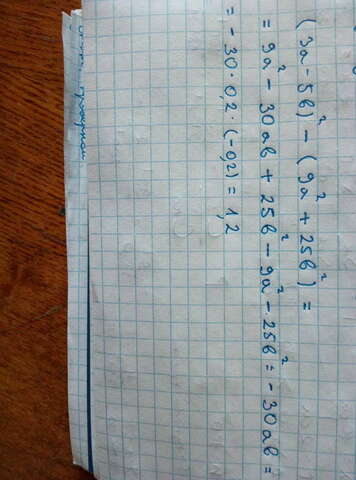 (3a - 5b)² - (9a² + 25b²) =
= 9a² - 30ab + 25b² - 9a² - 25b² = - 30ab =
= - 30 · 0,2 · (-0,2) = 1,2